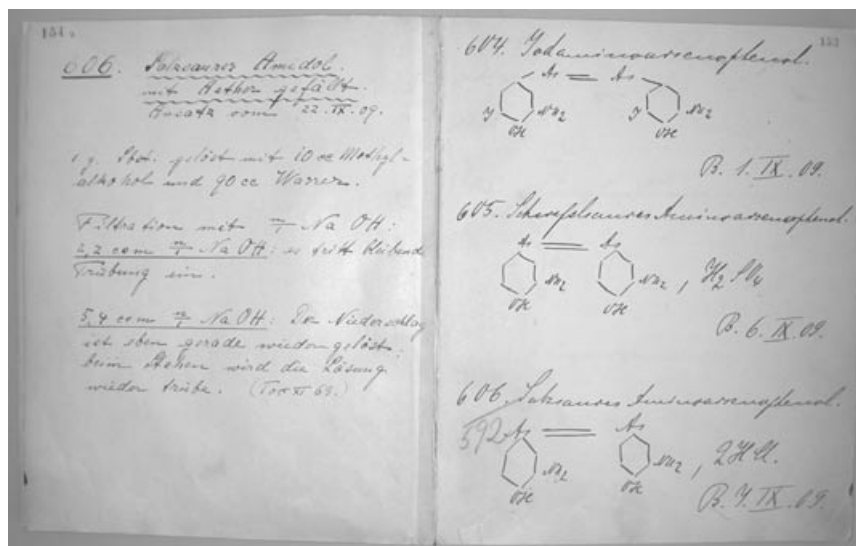 151a
606. Salzsaures Amidol.
mit Aether gefällt.
Ansatz vom 22. IX. 09.
1 g. Sbst. gelöst mit 10 cc Methyl-
alkohol und 90 cc Wasser.
Filtration mit n/1 Na OH:
2,2 ccm n/1 Na OH: es tritt bleibende
Trübung ein.
5,4 ccm n/1 Na OH: Der Niederschlag
ist eben gerade wieder gelöst;
beim Stehen wird die Lösung
wieder trübe.
152
604. Jodaminoarsenophenol.
As = As
J NH2 J NH2
OH OH
B. 1. IX. 09.
605. Schwefelsaures Aminoarsenophenol.
As = As
NH2 NH2 , H2SO4
OH OH
B. 6. IX. 09.
606. Salzsaures Aminoarsenophenol.
592 As = As
NH2 NH2 , 2HCl.
OH OH
IX. 09.